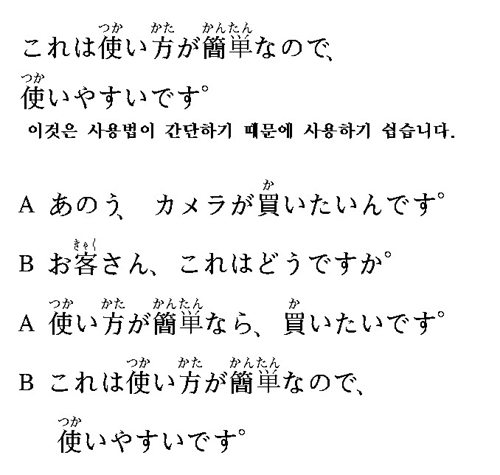 これは使い方が簡単なので、
使いやすいです。
이것은 사용법이 간단하기 때문에 사용하기 쉽습니다.
A あのう、カメラが買いたいんです。
B お客さん、これはどうですか。
A 使い方が簡単なら、買いたいです。
B これは使い方が簡単なので、
使いやすいです。